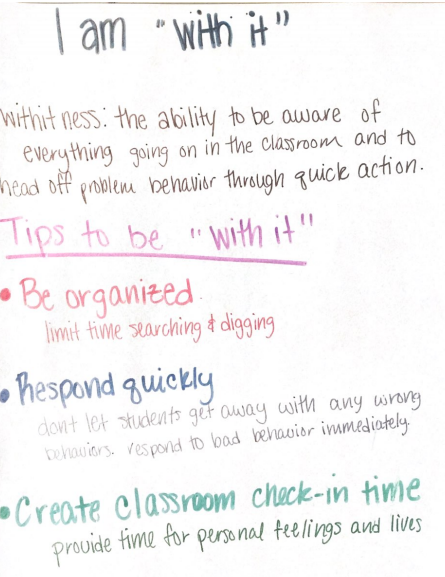 I am "with it"
Withitness: the ability to be aware of
everything going on in the classroom and to
head off problem behavior through quick action.
Tips to be "with it"
• Be organized
limit time searching & digging
• Respond quickly
dont let students get away with any wrong
behaviors. respond to bad behavior immediately.
• Create classroom check-in time
provide time for personal feelings and lives